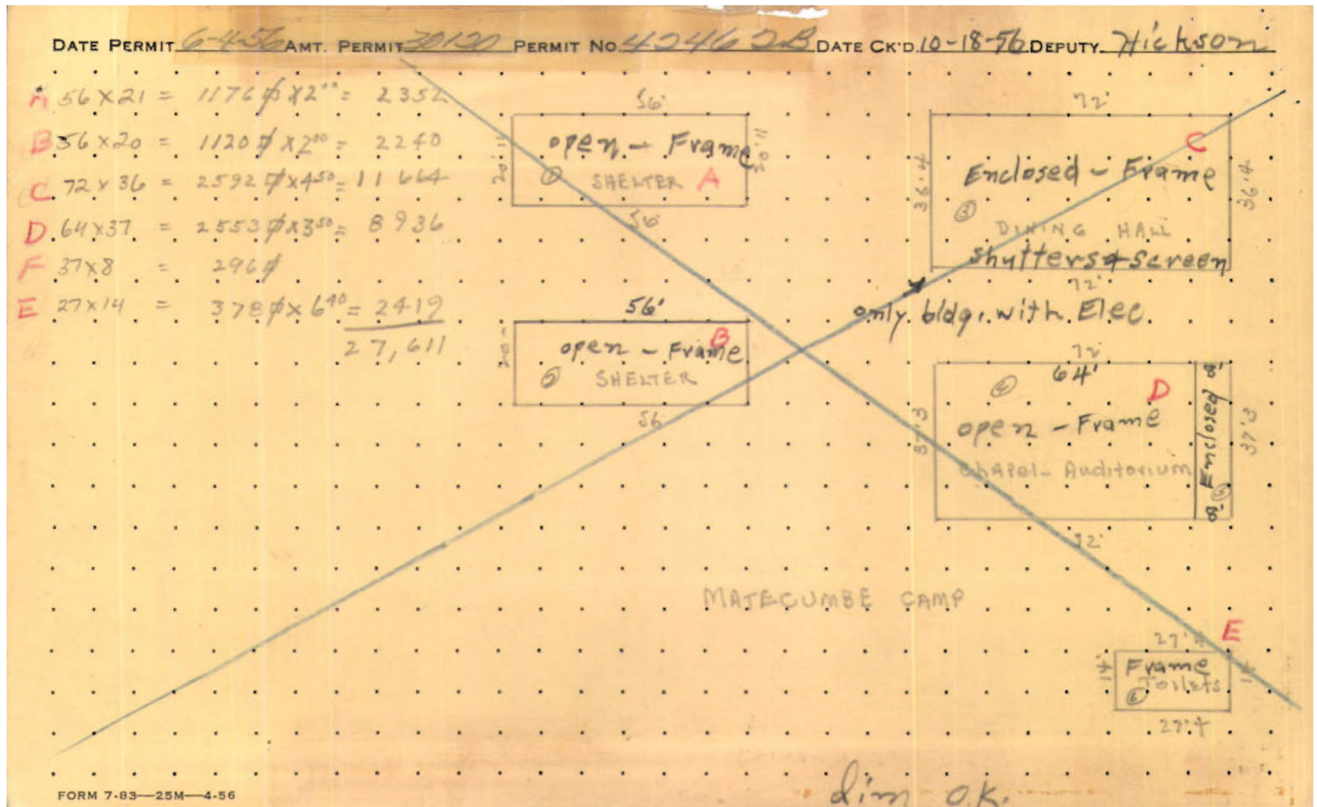 DATE PERMIT 6-4-56 AMT. PERMIT 30120 PERMIT NO. 42462B DATE CK'D. 10-18-56 DEPUTY Hickson
A 56 x 21 = 1176 ⌀ x 2⁰⁰ = 2352
B 56 x 20 = 1120 ⌀ x 2⁰⁰ = 2240
C 72 x 36 = 2592 ⌀ x 4⁵⁰ = 11664
D 64 x 37 = 2553 ⌀ x 3⁵⁰ = 8936
F 37 x 8 = 296 ⌀
E 27 x 14 = 378 ⌀ x 6⁴⁰ = 2419
27,611
56'
20'11
open - Frame
SHELTER A
20'11
56
56'
20
open - Frame B
SHELTER
56
72'
36'4
C
Enclosed - Frame
③
DINING HALL
shutters & screen
36'4
72'
only bldg. with Elec.
72'
64'
37'3
④ D
open - Frame
Chapel - Auditorium
8'
Enclosed
⑤
8'
37'3
72'
MATECUMBE CAMP
E
27'4
14'
Frame
Toilets
⑥
14
27'4
FORM 7-83—25M—4-56
dim O.K.